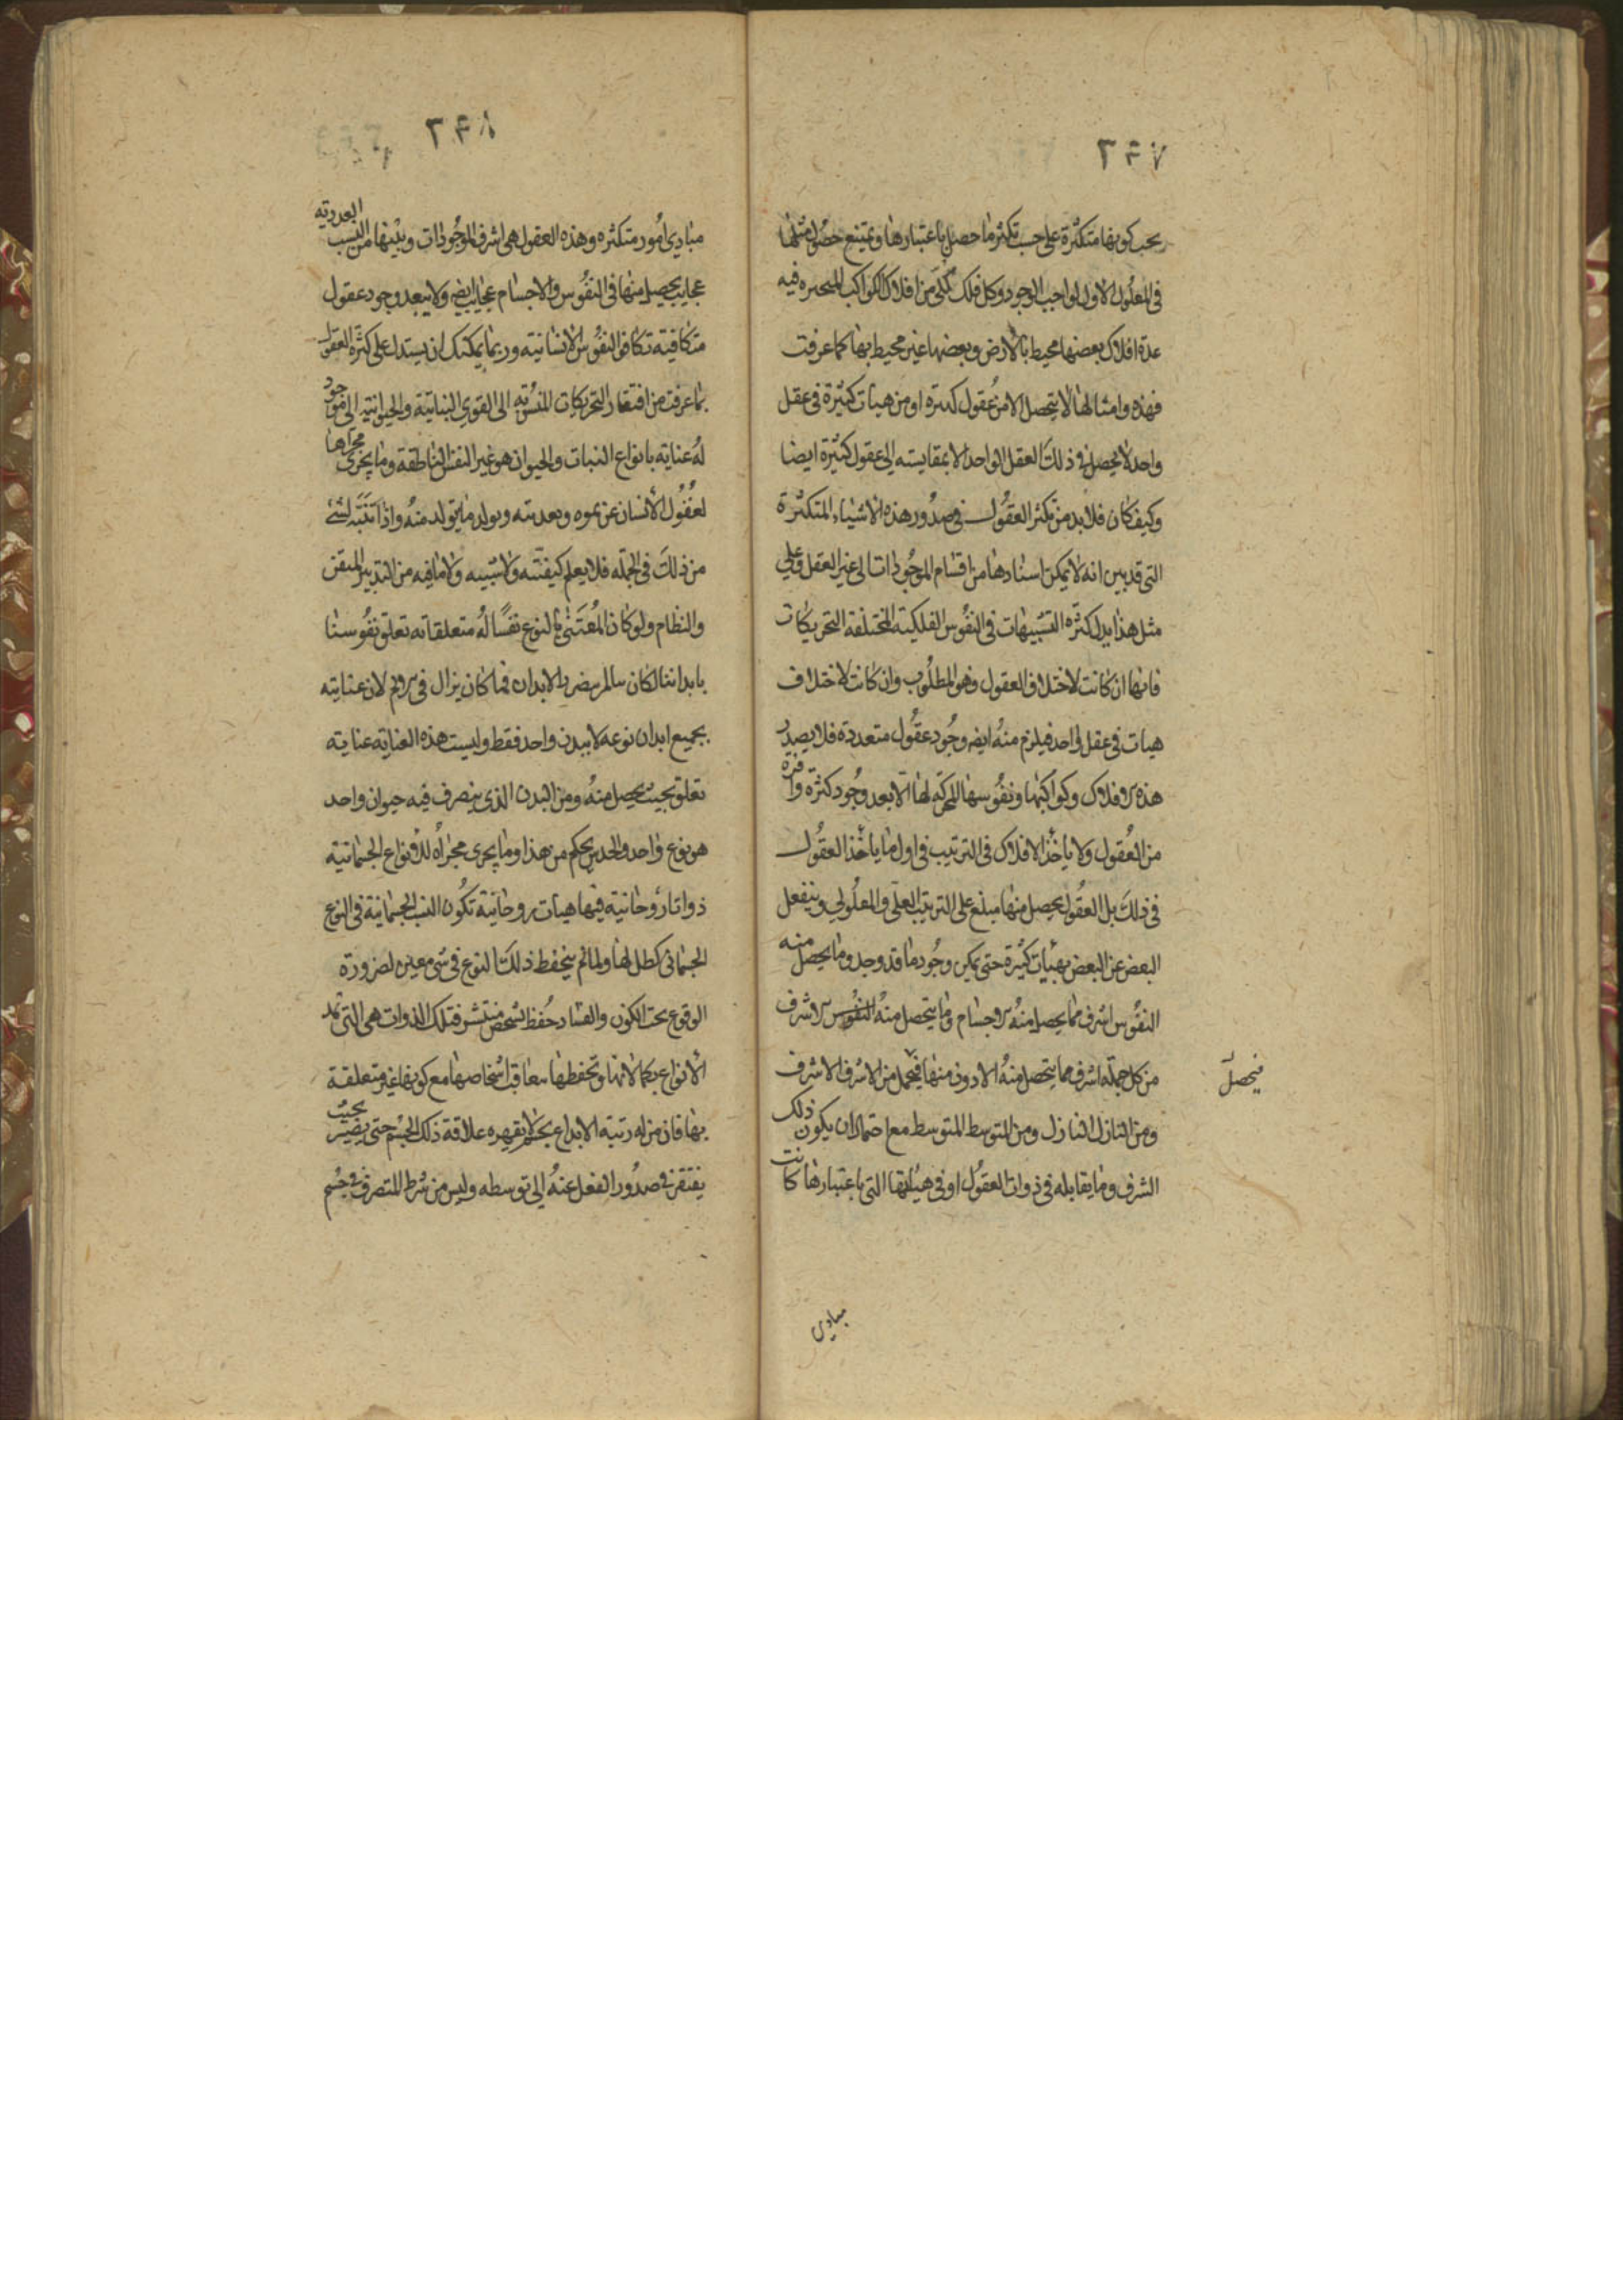 ٢٤٧
يجب كونها متكثرة على حسب تكثر ما حصل باعتبارها ويمتنع حصول مثلها
في المعلول الاول لواجب الوجود وكل فلك كلى من افلاك الكواكب المتحيره فيه
عدة افلاك بعضها محيط بالأرض وبعضها غير محيط بها كما عرفت
فهذه وامثالها لا يتحصل الا من عقول كثيرة او من هيات كثيرة في عقل
واحد لا يحصل في ذلك العقل الواحد الا بمقايسته الى عقول كثيرة ايضا
وكيف كان فلا بد من تكثر العقول في صدور هذه الاشياء المتكثرة
التي قد بين انه لا يمكن استنادها من اقسام الموجودات الى غير العقل وعلي
مثل هذا يدل كثره التشبيهات في النفوس الفلكية المختلفة التحريكات
فانها ان كانت لاختلاف العقول وهو المطلوب وان كانت لاختلاف
هيات في عقل واحد فيلزم منه ايضا وجود عقول متعددة فلا يصدر
هذه الافلاك وكواكبها ونفوسها المحركه لها الا بعد وجود كثرة وافرة
من العقول ولا ياخذ الافلاك في الترتيب في اول ما ياخذ العقول
في ذلك بل العقول يحصل منها مبلغ على الترتيب العلى والمعلولي وينفعل
البعض عن البعض بهيأت كثيرة حتى يمكن وجود ما قد وجد وما يحصل منه
النفوس اشرف مما يحصل منه الاجسام وما يتحصل منه النفوس الاشرف
من كل جمله اشرف مما يتحصل منه الادون منها فيحصل من الاشرف الاشرف
فيحصل
ومن النازل النازل ومن المتوسط المتوسط مع احتمال ان يكون ذلك
الشرف وما يقابله في ذوات العقول او في هيئاتها التي باعتبارها كانت
مبادي
٢٤٨
مبادي أمور متكثره وهذه العقول هي اشرف الموجودات وبينها من النسب العدديه
عجايب يحصل منها في النفوس والاجسام عجايب ايض ولا يبعد وجود عقول
متكافية تكافؤ النفوس الانسانية وربما يمكنك ان يستدل على كثرة العقول
بما عرفت من افتقار التحريكات المنسوبة الى القوى النباتية والحيوانية الى موجود
له عناية بانواع النبات والحيوان هو غير النفس الناطقة وما يجرى مجراها
لغفول الأنسان عن نموه وتغذيته وتولد ما يتولد منه واذا تنبه لشئ
من ذلك في الجملة فلا يعلم كيفيته ولا سببه ولا ما فيه من التدبير المتقن
والنظام ولو كان المعتنى بالنوع نفسا له متعلقا به تعلق نفوسنا
بابداننا لكان يتألم بضرر الابدان فما كان يزال في الالم لان عنايته
بجميع ابدان نوعه لا ببدن واحد فقط وليست هذه العناية عناية
تعلق بحيث يحصل منه ومن البدن الذي يتصرف فيه حيوان واحد
هو نوع واحد والحدس يحكم من هذا وما يجرى مجراه للانواع الجسمانية
ذواتا روحانية فيها هيات روحانية تكون النسب الجسمانية في النوع
الجسماني كظل لها ولما لم ينحفظ ذلك النوع في شئ معين لضرورة
الوقوع تحت الكون والفساد حفظ بشخص منتشر فتلك الذوات هي التي تمد
الأنواع بكمالاتها وتحفظها بتعاقب اشخاصها مع كونها غير متعلقة
بها فان من له رتبة الابداع بجسم لا يقهره علاقة ذلك الجسم حتى يصير بحيث
يفتقر في صدور الفعل عنه الى توسطه وليس من شرط المتصرف في جسم